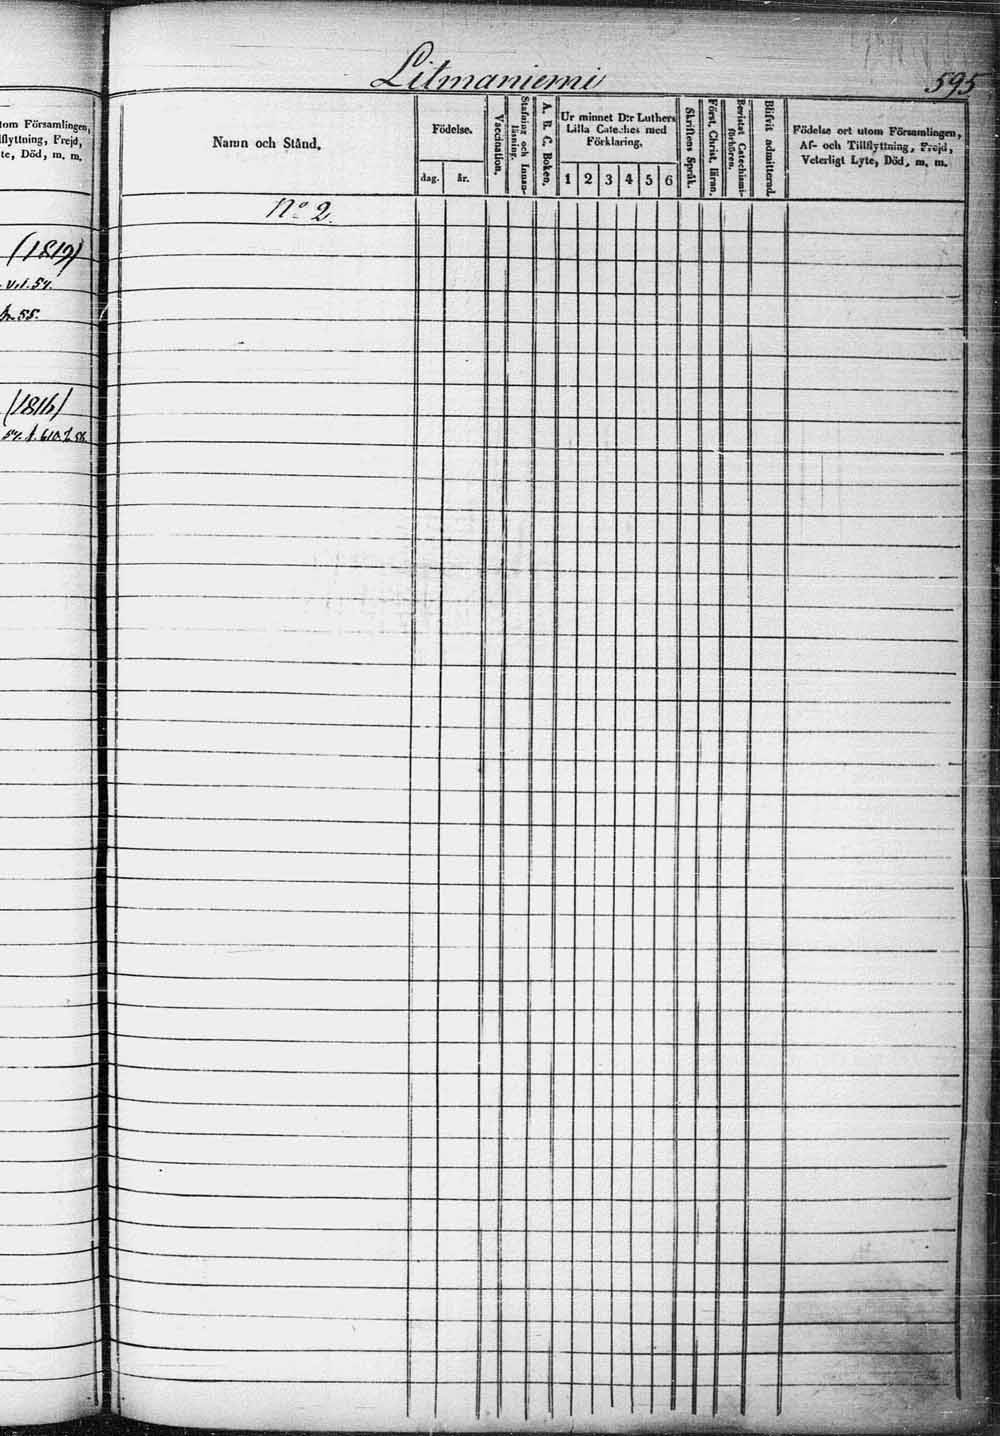 Litmaniemi
595
tom Församlingen,
flyttning, Frejd,
te, Död, m. m.
(1819)
(1816)
Namn och Stånd.
Födelse.
dag.
år.
Vaccination.
Stafning och Innanläsning.
A. B. C. Boken.
Ur minnet D:r Luthers
Lilla Cateches med
Förklaring.
1 2 3 4 5 6
Skriftens Språk.
Först. Christ. läran.
Bevistat Catechismiförhören.
Blifvit admitterad.
Födelse ort utom Församlingen,
Af- och Tillflyttning, Frejd,
Veterligt Lyte, Död, m. m.
No 2.